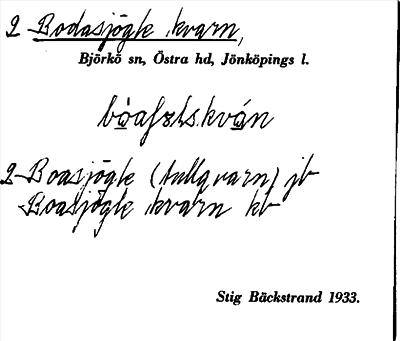 2 Bodasjögle kvarn,
Björkö sn, Östra hd, Jönköpings l.
2 Boasjögle (tullqvarn) jb
Boasjögle kvarn kb
Stig Bäckstrand 1933.